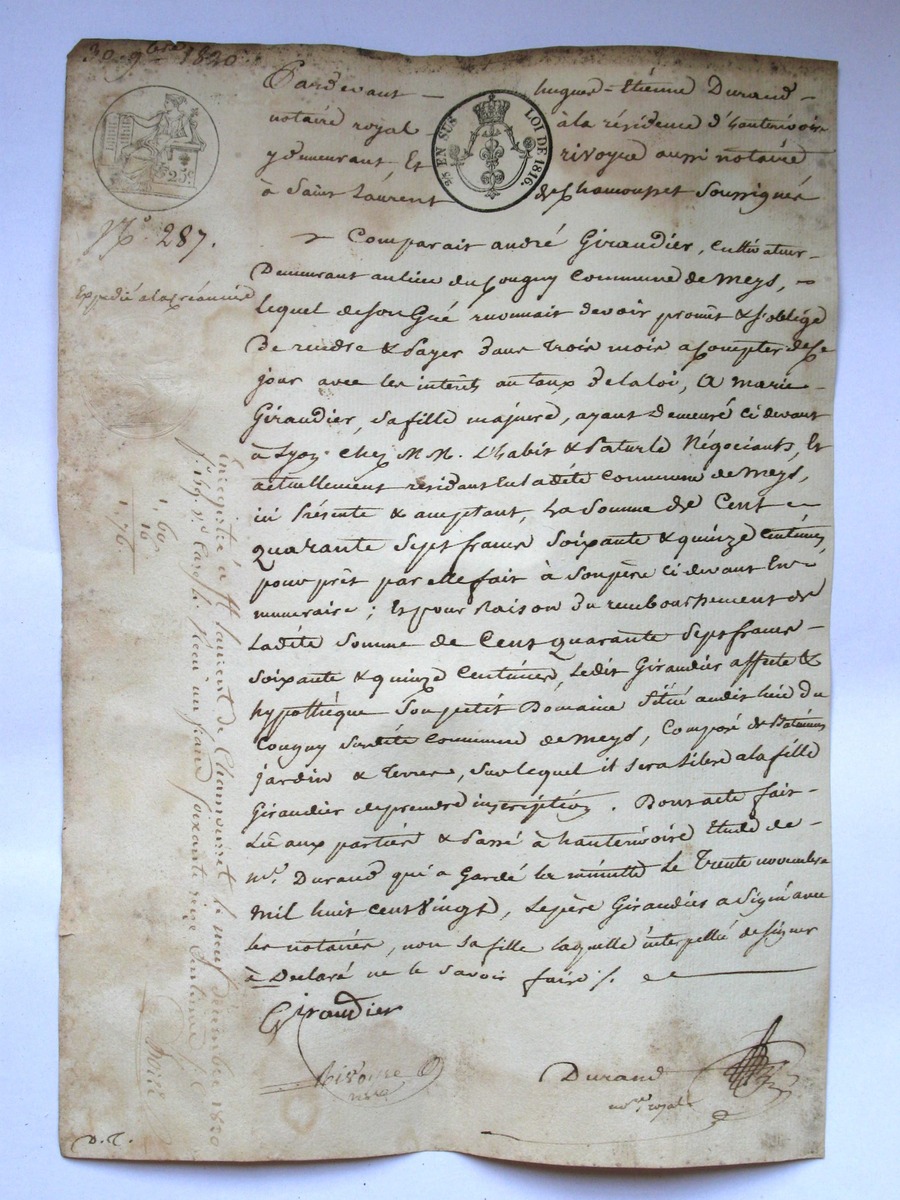 30 9bre 1820.
Pardevant hugues-Etienne Durand
notaire royal à la résidence d'hauterivoire
y demeurant, Et rivoyre aussi notaire
à Saint Laurent de Chamousset Soussignés
25c.
9/5 EN SUS
LOI DE 1816.
No. 287.
Expédié a la créancière
Comparait andré Giraudier, cultivateur
Demeurant au lieu du Cougny Commune de Meys,
lequel de Son Gré reconnait devoir promet & s'oblige
De rendre & Payer Dans trois mois a Compter de Ce
jour avec les interêts au taux de la loi, a marie
Giraudier, Sa fille majeure, ayant demeuré ci devant
à Lyon chez M.M. L'habit & Paturle Négociants, Et
actuellement résidant En ladite Commune de Meys,
ici Présente & acceptant, La Somme de Cent
quarante Sept francs Soixante & quinze Centimes,
pour prêt par elle fait à Son père ci devant En
numeraire; Et pour Raison du remboursement de
Ladite Somme de Cent quarante Sept francs
Soixante & quinze Centimes, Ledit Giraudier affecte &
hypothèque Son petit Domaine Situé audit lieu du
Cougny Susdite Commune de Meys, Composé de Batimens
jardin & Terres, Sur lequel il Sera libre a la fille
Giraudier de prendre inscription. Dont acte fait
Lû aux parties & Passé à hauterivoire Etude de
Me. Durand qui a Gardé la minutte Le Trente novembre
Mil huit Cent Vingt, Le père Giraudier a Signé avec
les notaires, non Sa fille laquelle interpellée de Signer
à Declaré ne le Savoir faire /.
Giraudier
Rivoyre
nre
Durand
nre royal
Enregistré à St laurent de Chamousset le neuf décembre 1820
fo. 159. Vo. Case 6. Reçu un franc soixante seize Centimes
1,60
16
1,76
D. R.